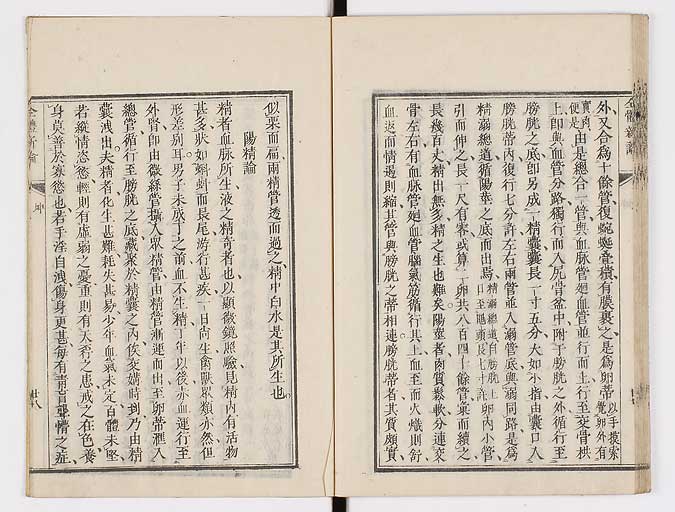 外又合為十餘管復蜿蜒疊積有膜裹之是為卵蒂以手摸索覺卵外有
實肉便是由是總合一管與血脉管廻血管並行而上行至交骨栱
上卽與血管分路獨行而入尻骨盆中附于膀胱之外循行至
膀胱之底卽另成一精囊囊長一寸五分大如小指由囊口入
膀胱蒂內復行七分許左右兩管並入溺管底與溺同路是為
精溺總道循陽莖之底而出焉精溺總道自膀胱上口至龜頭長七寸許卵內小管
引而伸之長一尺有零或算一卵共八百四十餘管彙而續之
長幾百丈精出無多精之生也難矣陽莖者肉質鬆軟分連交
骨左右有血脉管廻血管腦氣筋循行其上血至而火熾則舒
血返而情過則縮其管與膀胱之蒂相連膀胱蒂者其質頗實
似栗而扁兩精管透而過之精中白水是其所生也
陽精論
精者血脉所生液之精奇者也以顯微鏡照驗見精內有活物
甚多狀如蝌蚪而長尾游行甚疾一日尚生禽獸取類亦然但
形差別耳男子未成丁之前血不生精丁年以後赤血運行至
外腎卽由微絲管攝入眾精管由精管漸運而出至卵蒂滙入
總管循行至膀胱之底藏聚於精囊之內俟交媾時到乃由精
囊洩出夫精者化生甚難耗失甚易少年血氣未定百體未堅
若縱情恣慾輕則有虛弱之憂重則有夭折之患戒之在色養
身莫善於寡慾也若手淫自洩傷身更甚每有青盲聾惰之症
全體新論